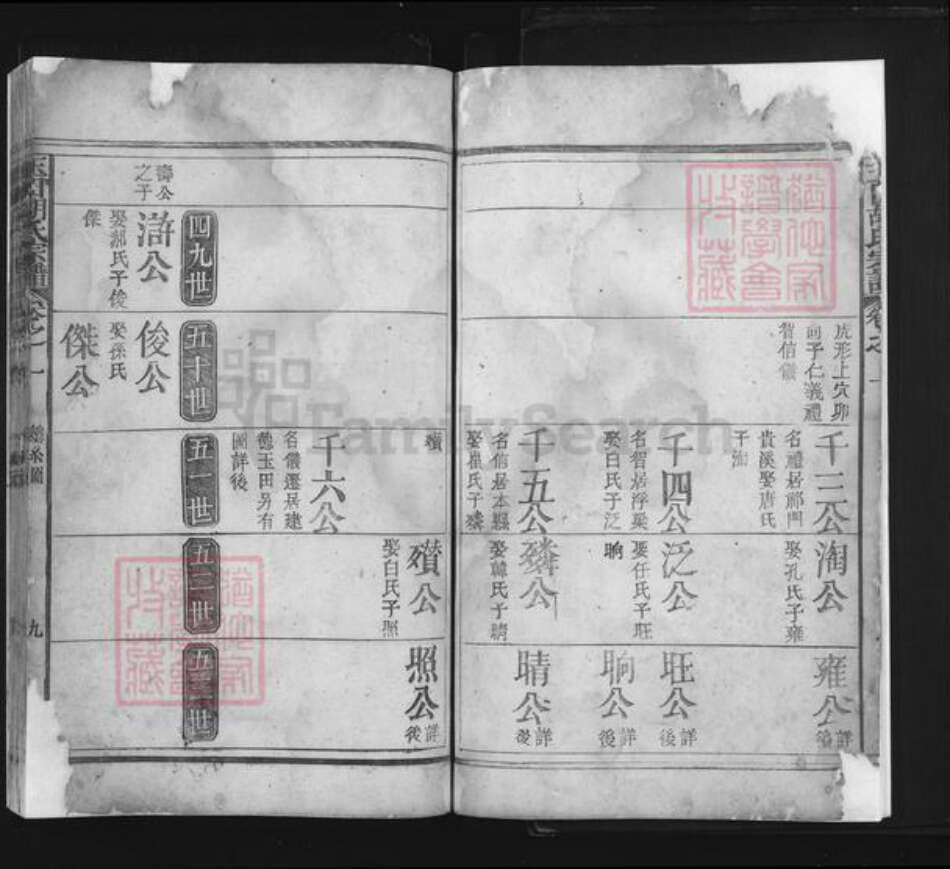 虎形上穴卯
向子仁義禮
智信儀
千三公
名禮居祁門
貴溪娶唐氏
子淘
淘公
娶孔氏子雍
雍公
詳後
千四公
名智居浮梁
娶白氏子泛
泛公
娶任氏子旺
晌
旺公
詳後
晌公
詳後
千五公
名信居本縣
娶崔氏子
公
娶韓氏子晴
晴公
詳後
積
積公
娶白氏子照
照公
詳後
千六公
名儀遷居建
德玉田另有
圖詳後
四九世
五十世
五一世
五二世
五三世
壽公
之子
滸公
娶郝氏子俊
傑
俊公
娶孫氏
傑公
胡氏宗譜
卷之一
九
FamilySearch